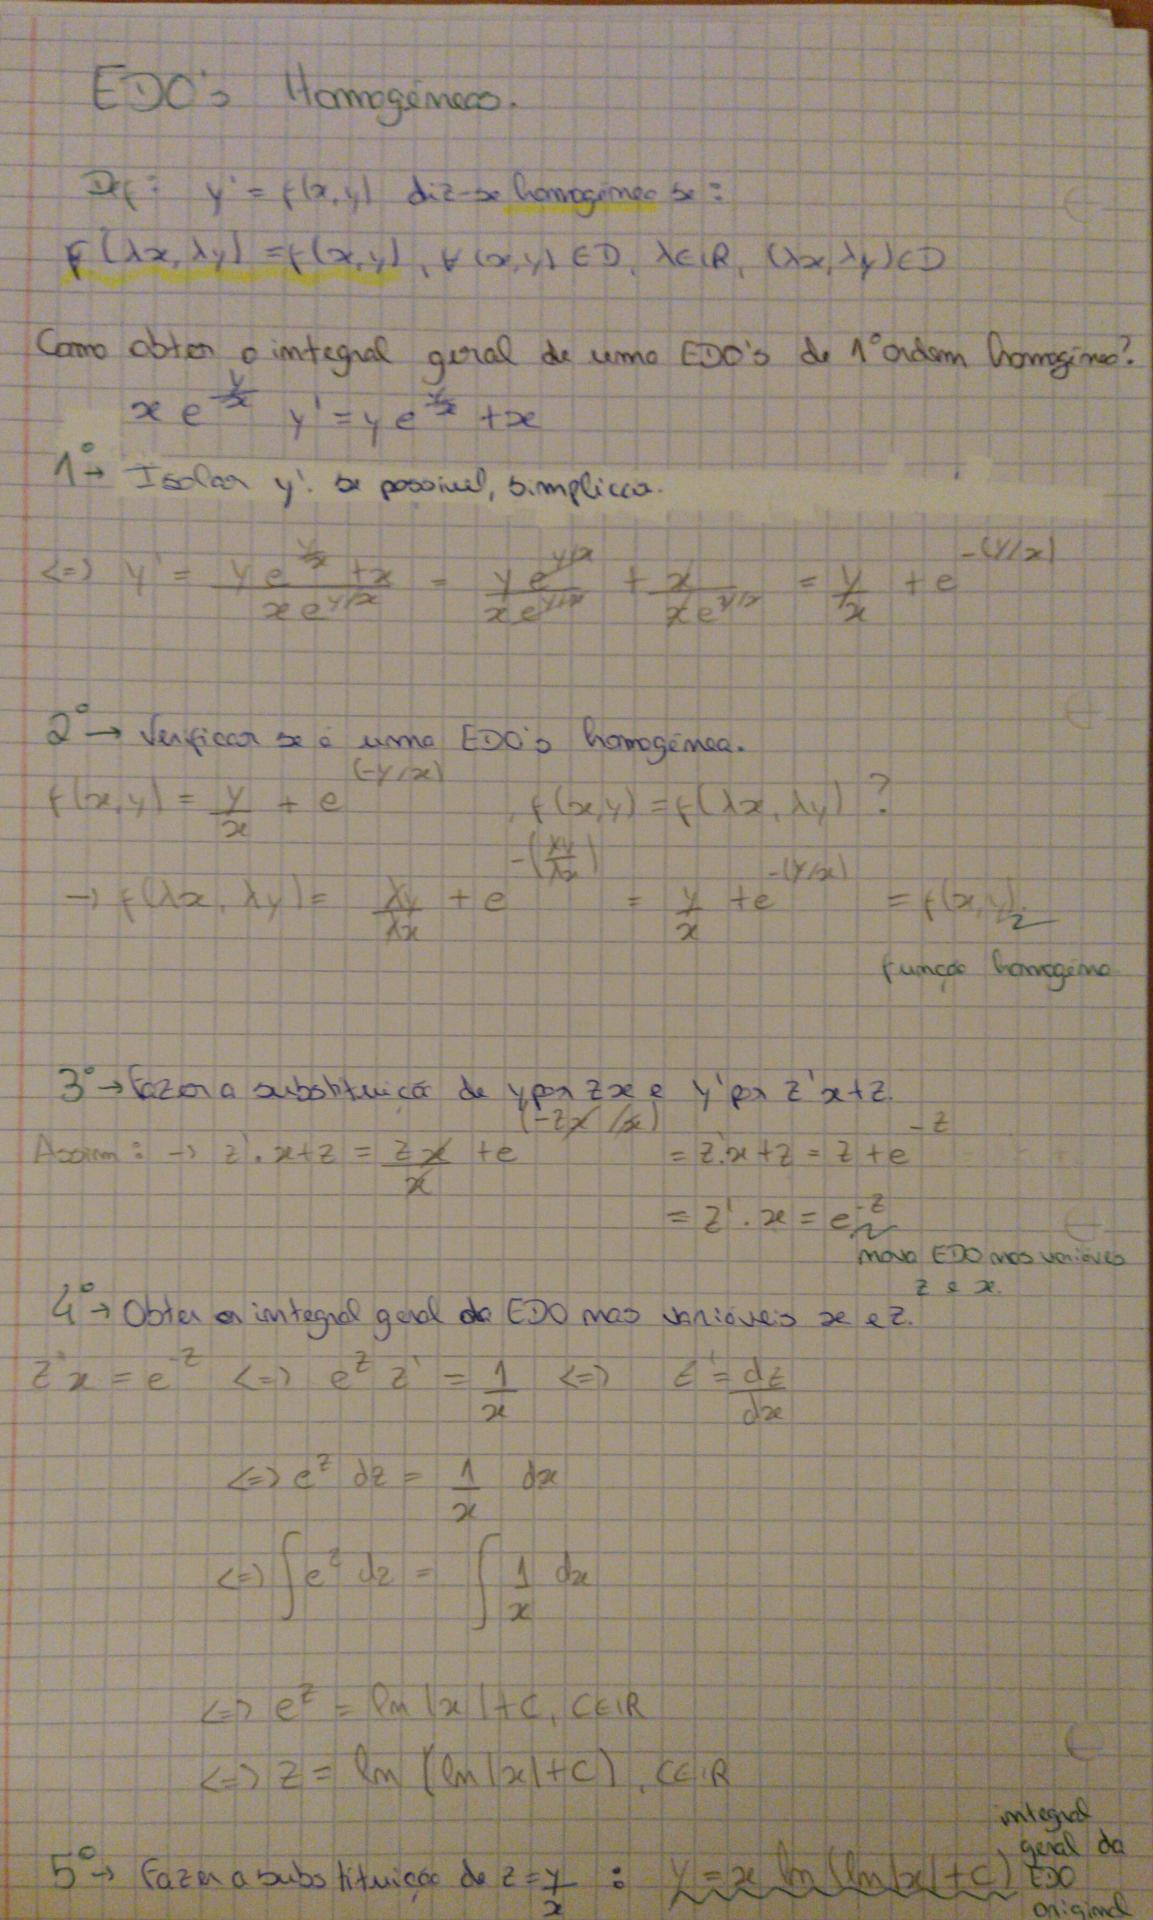 EDO's Homogéneas.
Def: y' = f(x,y) diz-se homogénea se:
f(λx, λy) = f(x,y), ∀(x,y) ∈ D, λ∈IR, (λx, λy) ∈ D
Como obter o integral geral de uma EDO's de 1º ordem homogénea?
x e^(y/x) y' = y e^(y/x) + x
1º → Isolar y'. se possivel, simplicar.
<=> y' = (y e^(y/x) + x)/(x e^(y/x)) = (y e^(y/x))/(x e^(y/x)) + x/(x e^(y/x)) = y/x + e^-(y/x)
2º → Verificar se é uma EDO's homogénea.
f(x,y) = y/x + e^(-y/x) , f(x,y) = f(λx, λy) ?
→ f(λx, λy) = λy/λx + e^-(λy/λx) = y/x + e^-(y/x) = f(x,y)
função homogénea
3º → Fazer a substituição de y por zx e y' por z'x+z.
Assim: → z'.x+z = zx/x + e^(-zx/x) = z'.x+z = z + e^-z
= z'.x = e^-z
nova EDO nas variáveis
z e x.
4º → Obter o integral geral da EDO nas variáveis x e z.
z'x = e^-z <=> e^z z' = 1/x <=> z' = dz/dx
<=> e^z dz = 1/x dx
<=> ∫e^z dz = ∫ 1/x dx
<=> e^z = ln|x|+C, C∈IR
<=> z = ln(ln|x|+C), C∈IR
5º → Fazer a substituição de z = y/x : y = x ln(ln|x|+C)
integral
geral da
EDO
original